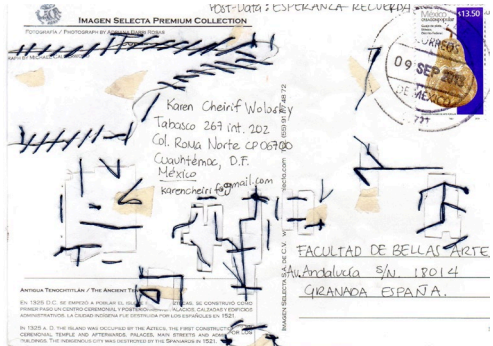 POST-DATA: ESPERANZA RECUERDA
IMAGEN SELECTA PREMIUM COLLECTION
FOTOGRAFÍA / PHOTOGRAPH BY ADRIANA
México
$13.50
CORREOS
09 SEP
DE MÉXICO
Karen Cheirif Wolosky
Tabasco 267 int. 202
Col. Roma Norte CP 06700
Cuauhtémoc, D.F.
México
karencheirif@gmail.com
FACULTAD DE BELLAS ARTE
Av. Andalucía S/N. 18014
GRANADA ESPAÑA.
IMAGEN SELECTA S.A. DE C.V.
ANTIGUA TENOCHTITLAN / THE ANCIENT
EN 1325 D.C. SE EMPEZÓ A POBLAR EL
SE CONSTRUYÓ COMO
PRIMER PASO UN CENTRO CEREMONIAL Y
PALACIOS, CALZADAS Y EDIFICIOS
ADMINISTRATIVOS. LA CIUDAD INDÍGENA FUE DESTRUIDA POR LOS ESPAÑOLES EN 1521.
IN 1325 A. D. THE ISLAND WAS OCCUPIED BY THE AZTECS, THE FIRST
CEREMONIAL TEMPLE AND AFTERWARDS, PALACES, MAIN STREETS AND
BUILDINGS. THE INDIGENOUS CITY WAS DESTROYED BY THE SPANIARDS IN 1521.